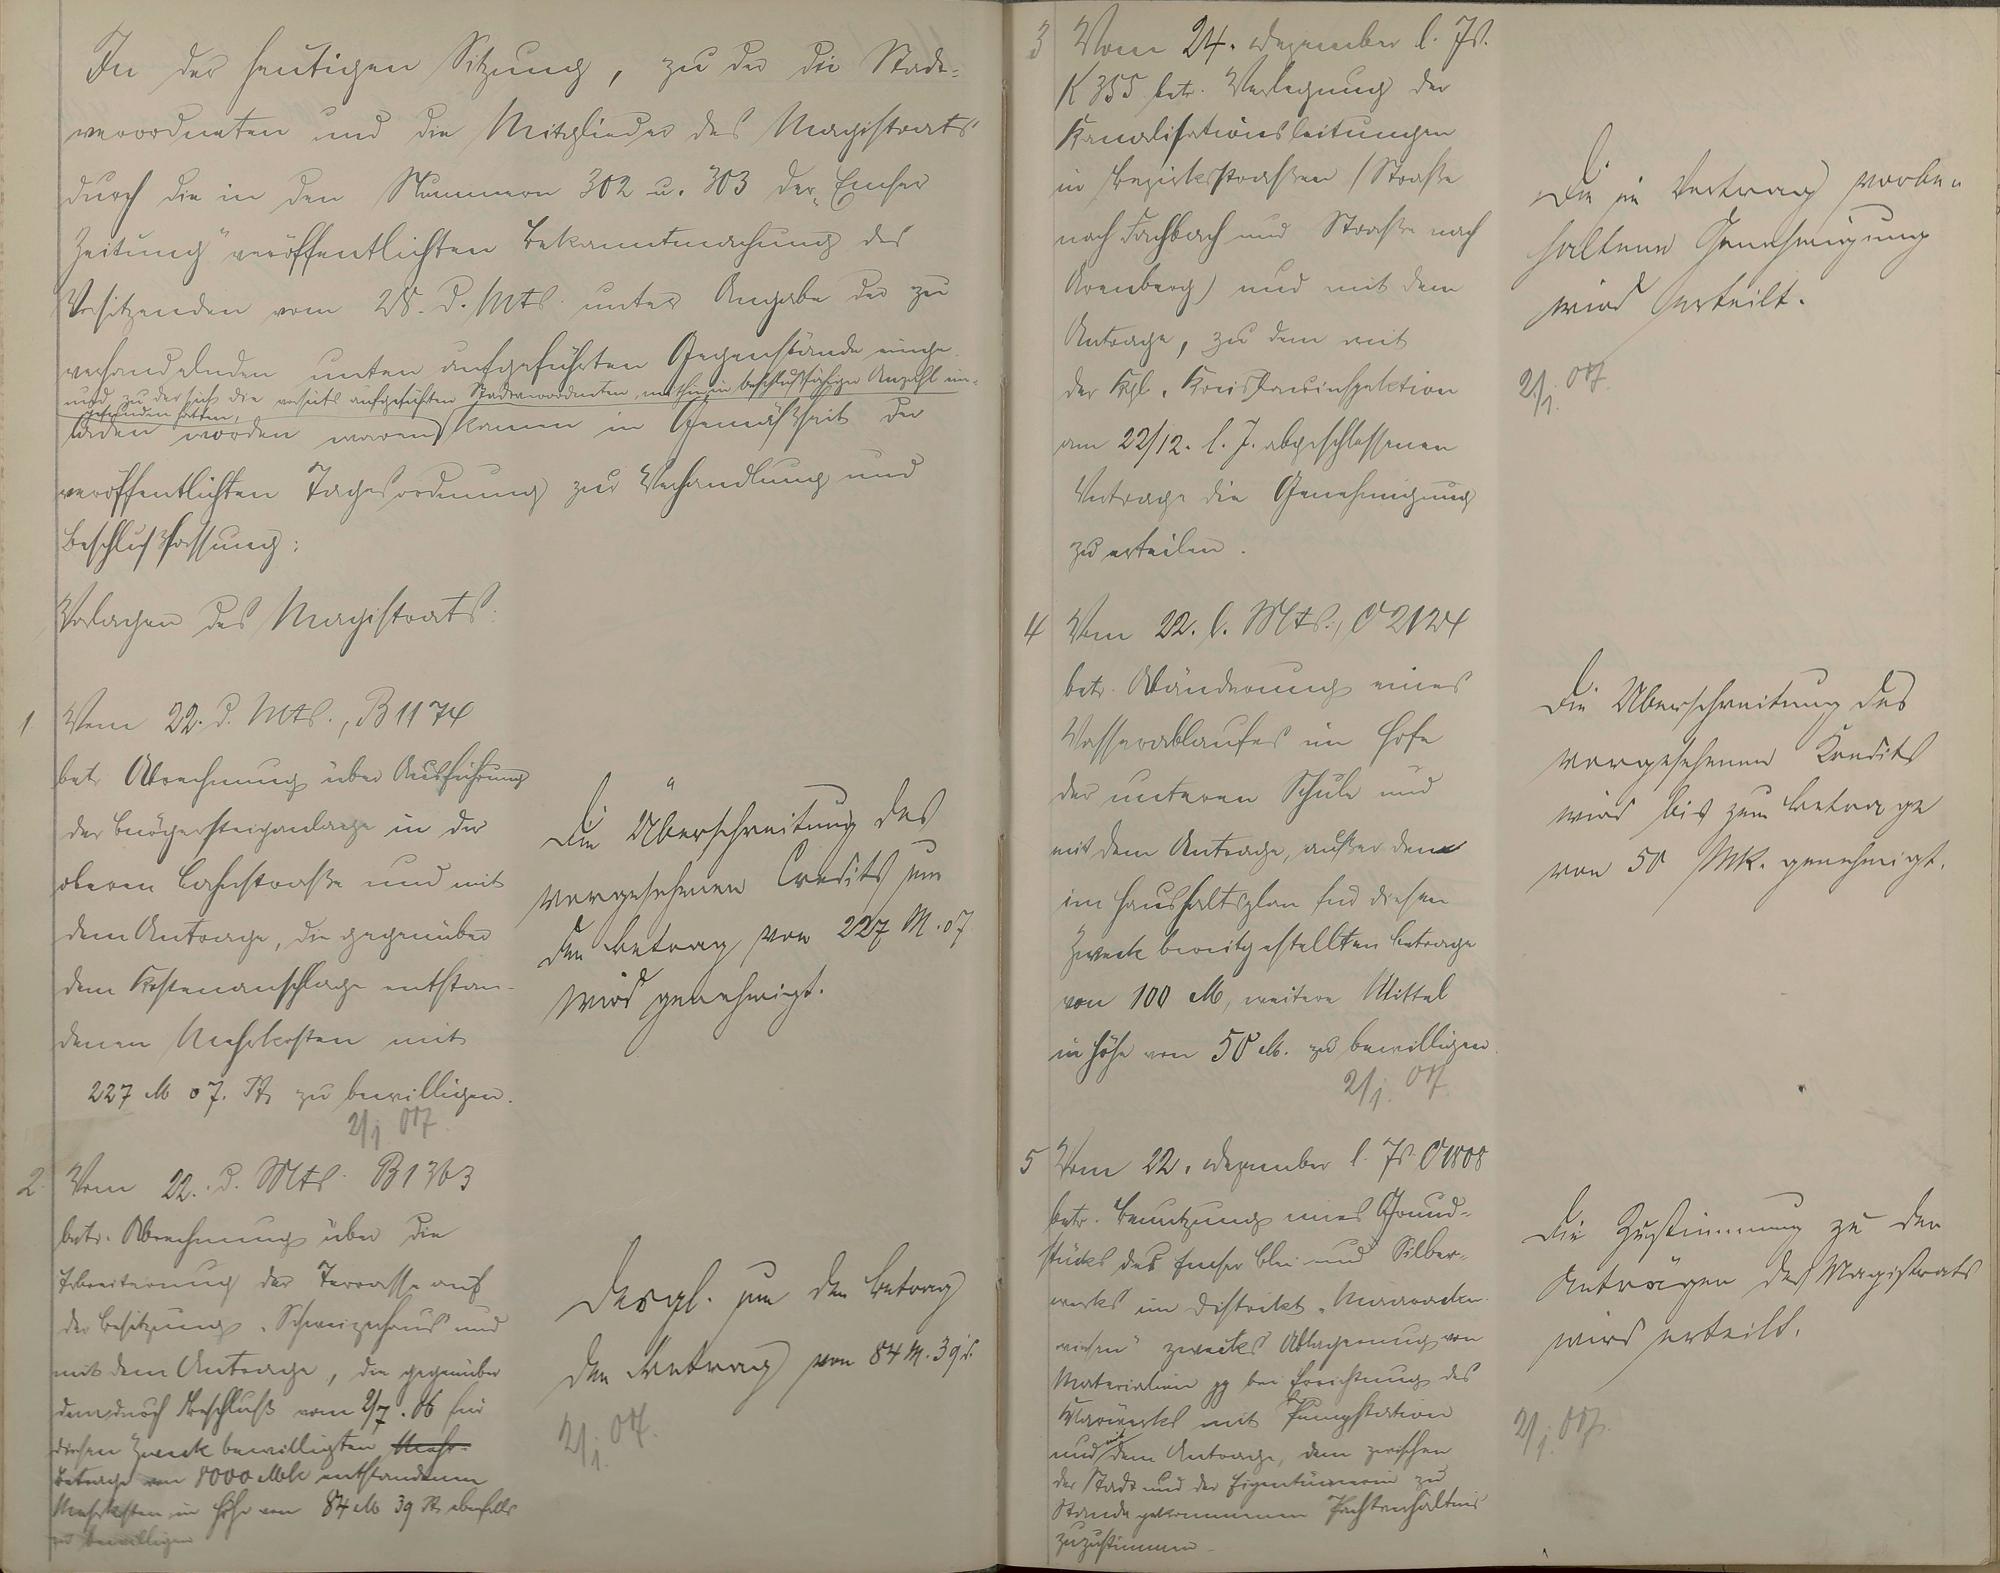 In der heutigen Sitzung, zu der die Stadt-
verordneten und die Mitglieder des Magistrats
durch die in den Nummern 302 u. 303 der „Emser
Zeitung" veröffentlichten Bekanntmachung des
Vorsitzenden vom 28. d. Mts. unter Angabe der zu
verhandelnden unten aufgeführten Gegenstände einge-
und zu der sich die vorseits aufgeführten Stadtverordneten, mithin in beschlußfähiger Anzahl ein-
gefunden hatten,
laden worden waren, kamen in Gemäßheit der
veröffentlichten Tagesordnung zur Verhandlung und
Beschlußfassung:
Vorlagen des Magistrats:
1. Vom 22. d. Mts., B 1174
betr. Abrechnung über Ausführung
der Bürgersteiganlage in der
oberen Lahnstraße und mit
dem Antrage, die gegenüber
dem Kostenanschlage entstan-
denen Mehrkosten mit
227 M 07. Pf. zu bewilligen.
2/1. 07.
Die Überschreitung des
vorgesehenen Credits um
den Betrag von 227 M. 07
wird genehmigt.
2. Vom 22. d. Mts. B 1363
betr. Abrechnung über die
Erbreiterung der Terrasse auf
der Besitzung „Schweizerhaus" und
mit dem Antrage, die gegenüber
dem durch Beschluß vom 2/7. 06 für
diesen Zweck bewilligten Mehr-
betrage von 8000 Mk entstandenen
Mehrkosten in Höhe von 84 M 39 Pf. ebenfalls
zu bewilligen
Desgl. um den Betrag
den Betrag von 84 M. 39 d.
2/1. 07.
3 Vom 24. Dezember l. Js.
K 355 betr. Verlegung der
Kanalisationsleitungen
in Bezirksstraßen (Straße
nach Fachbach und Straße nach
Arenberg) und mit dem
Antrage, zu dem mit
der Kgl. Kreisbauinspektion
am 22/12. l. J. abgeschlossenen
Vertrage die Genehmigung
zu erteilen.
Die im Vertrag vorbe-
haltene Genehmigung
wird erteilt.
2/1. 07.
4 Vom 22. l. Mts., C 2124
betr. Abänderung eines
Wasserablaufes im Hofe
der unteren Schule und
mit dem Antrage, außer dem
im Haushaltsplan für diesen
Zweck bereitgestellten Betrage
von 100 M, weitere Mittel
in Höhe von 50 M. zu bewilligen.
2/1. 07.
Die Überschreitung des
vorgesehenen Kredits
wird bis zum Betrage
von 50 Mk. genehmigt.
5 Vom 22. Dezember l. Js. C 1808
betr. Benutzung eines Grund-
stücks des Emser Blei- und Silber-
werks im Distrikt „
wiesen" zwecks Ablagerung von
Materialien pp bei Errichtung des
Klärwerks mit Pumpstation
und mit dem Antrage, dem zwischen
der Stadt und der Eigentümerin zu
Stande gekommenen Pachtverhältnis
zuzustimmen.
Die Zustimmung zu den
Anträgen des Magistrats
wird erteilt.
2/1. 07.